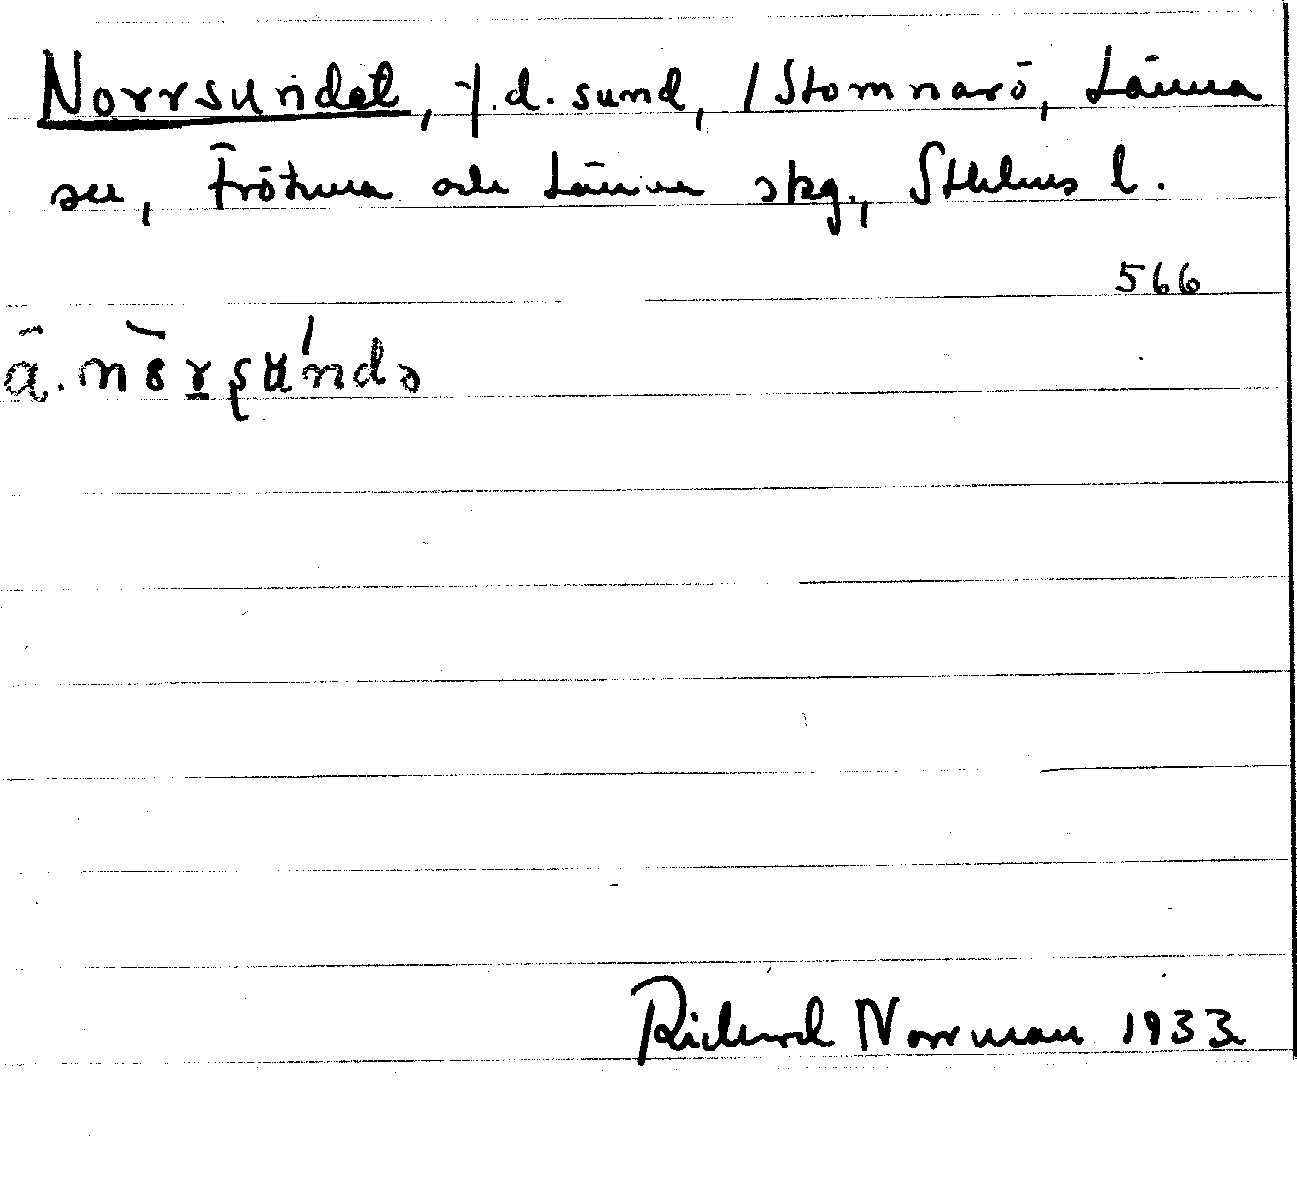 Norrsundet, f.d. sund, / Stomnarö, Länna
sn, Frötuna och Länna skg., Sthlms l.
566
å. nɵ̀rʂʉ́ndə
Rickard Norrman 1933